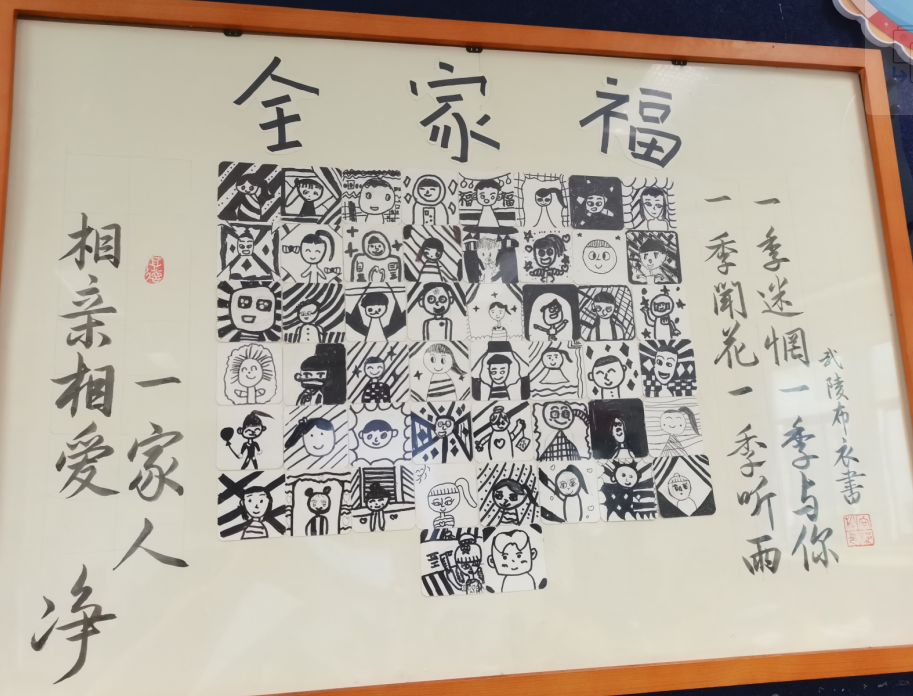 全家福
相亲相爱
一家人
净
福 福
一季聞花一季听雨
一季迷惘一季与你
武陵布衣書